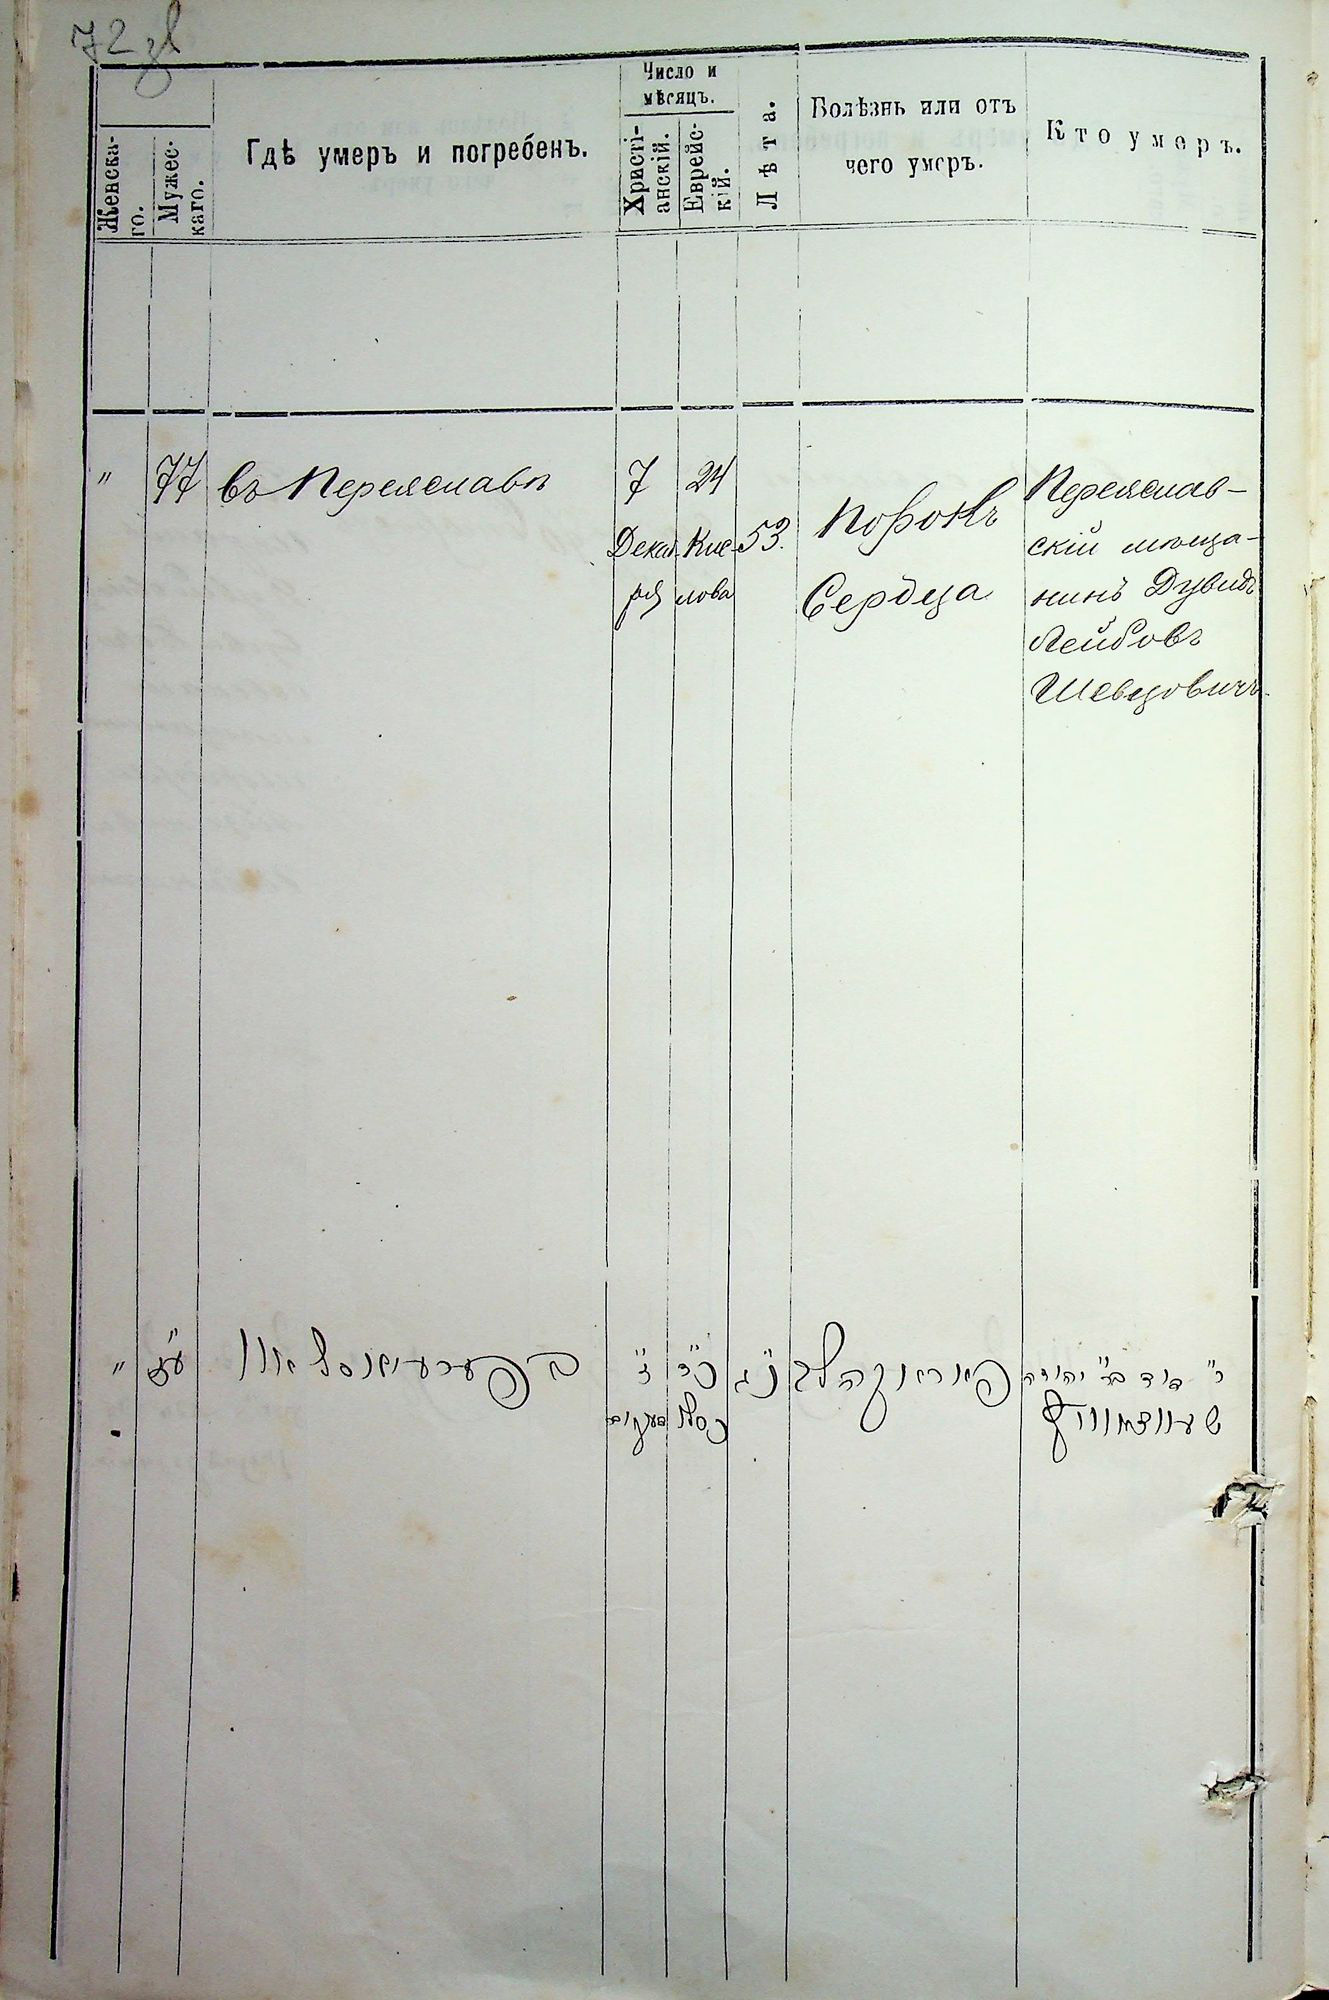 72 зв
Женска-
го.
Мужес-
каго.
Гдѣ умеръ и погребенъ.
Число и
мѣсяцъ.
Христі-
анскій.
Еврейс-
кій.
Лѣта.
Болѣзнь или отъ
чего умеръ.
Кто умеръ.
"
77
въ Переяславѣ
7
Декаб-
ря
24
Кис-
лова
53.
Порокъ
Сердца
Переяслав-
скій мѣща-
нинъ Дувидъ
Лейбовъ
Шевцовичъ.
"
ע"ז
ז"
כ"ד
כסלו
נ"ג
ר' דוד ב"ר יהודה